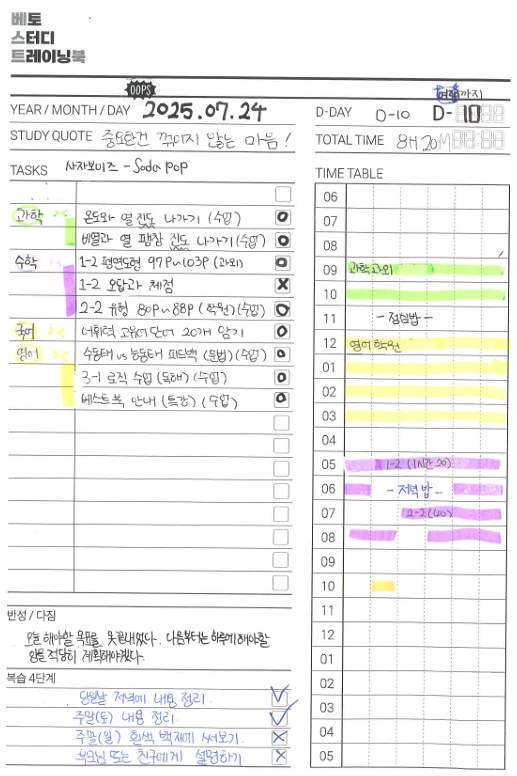 베토
스터디
트레이닝북
OOPS
YEAR / MONTH / DAY 2025.07.24
STUDY QUOTE 중요한건 꺾이지 않는 마음!
TASKS 사자보이즈 - Soda pop
과학 온도와 열 진도 나가기 (수업) O
비열과 열 팽창 진도 나가기 (수업) O
수학 1-2 평면도형 97P~103P (과외) O
1-2 오답과 채점 X
2-2 유형 80P~88P (학원)(수업) O
국어 어휘력 고유어 단어 20개 암기 O
영어 수동태 vs 능동태 피드백 (문법)(수업) O
3-1 로직 수업 (독해) (수업) O
베스트북 안내 (특강) (수업) O
반성 / 다짐
오늘 해야할 목표를 못끝내었다. 다음부터는 하루에 해야할
양을 적당히 계획해야겠다.
복습 4단계
당일날 저녁에 내용 정리.
주말(토) 내용 정리.
주말(일) 흰색 백지에 써보기.
부모님 또는 친구에게 설명하기
까지
D-DAY D-10 D-10
TOTAL TIME 8H 20M
TIME TABLE
06
07
08
09 과학과외
10
11 - 점심밥 -
12 영어학원
01
02
03
04
05 1-2 (1시간 20)
06 - 저녁밥 -
07 2-2 (40)
08
09
10
11
12
01
02
03
04
05